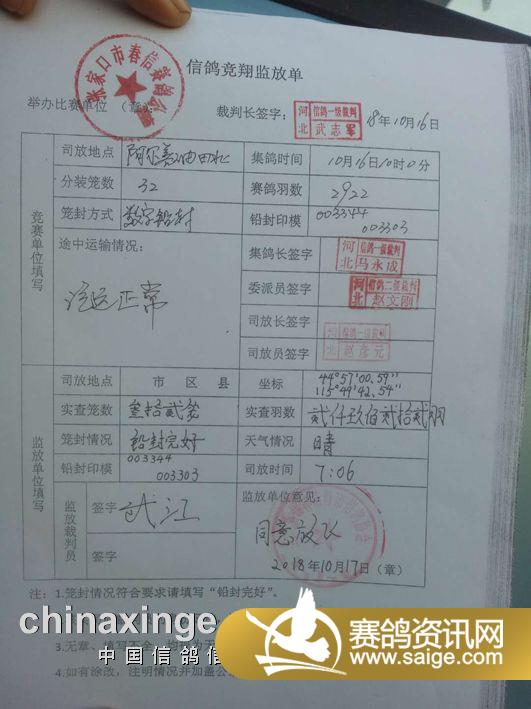 信鸽竞翔监放单
张家口市春信赛鸽公棚
举办比赛单位 （章）
裁判长签字：
河北 信鸽一级裁判 武志军
18年10月16日
竞赛单位填写
司放地点 阿尔善油田北 集鸽时间 10月16日10时0分
分装笼数 32 赛鸽羽数 2922
笼封方式 数字铅封 铅封印模 003344 003303
途中运输情况：
运正常
集鸽长签字 河北 信鸽一级裁判 马永成
委派员签字 河北 信鸽二级裁判 赵文刚
司放长签字
司放员签字 河北 信鸽一级裁判 赵彦元
监放单位填写
司放地点 市 区 县 坐标 44°57'00.59" 115°49'42.54"
实查笼数 叁拾贰笼 实查羽数 贰仟玖佰贰拾贰羽
笼封情况 铅封完好 天气情况 晴
铅封印模 003344 003303 司放时间 7:06
监放裁判员
签字 武江
签字
监放单位意见：
同意放飞
2018年10月17日（章）
注：1.笼封情况符合要求请填写“铅封完好”。
3.无章、填写不全、均
4.如有涂改，注明情况并加盖公
chinaxinge
中国信鸽信
赛鸽资讯网
www.saige.com